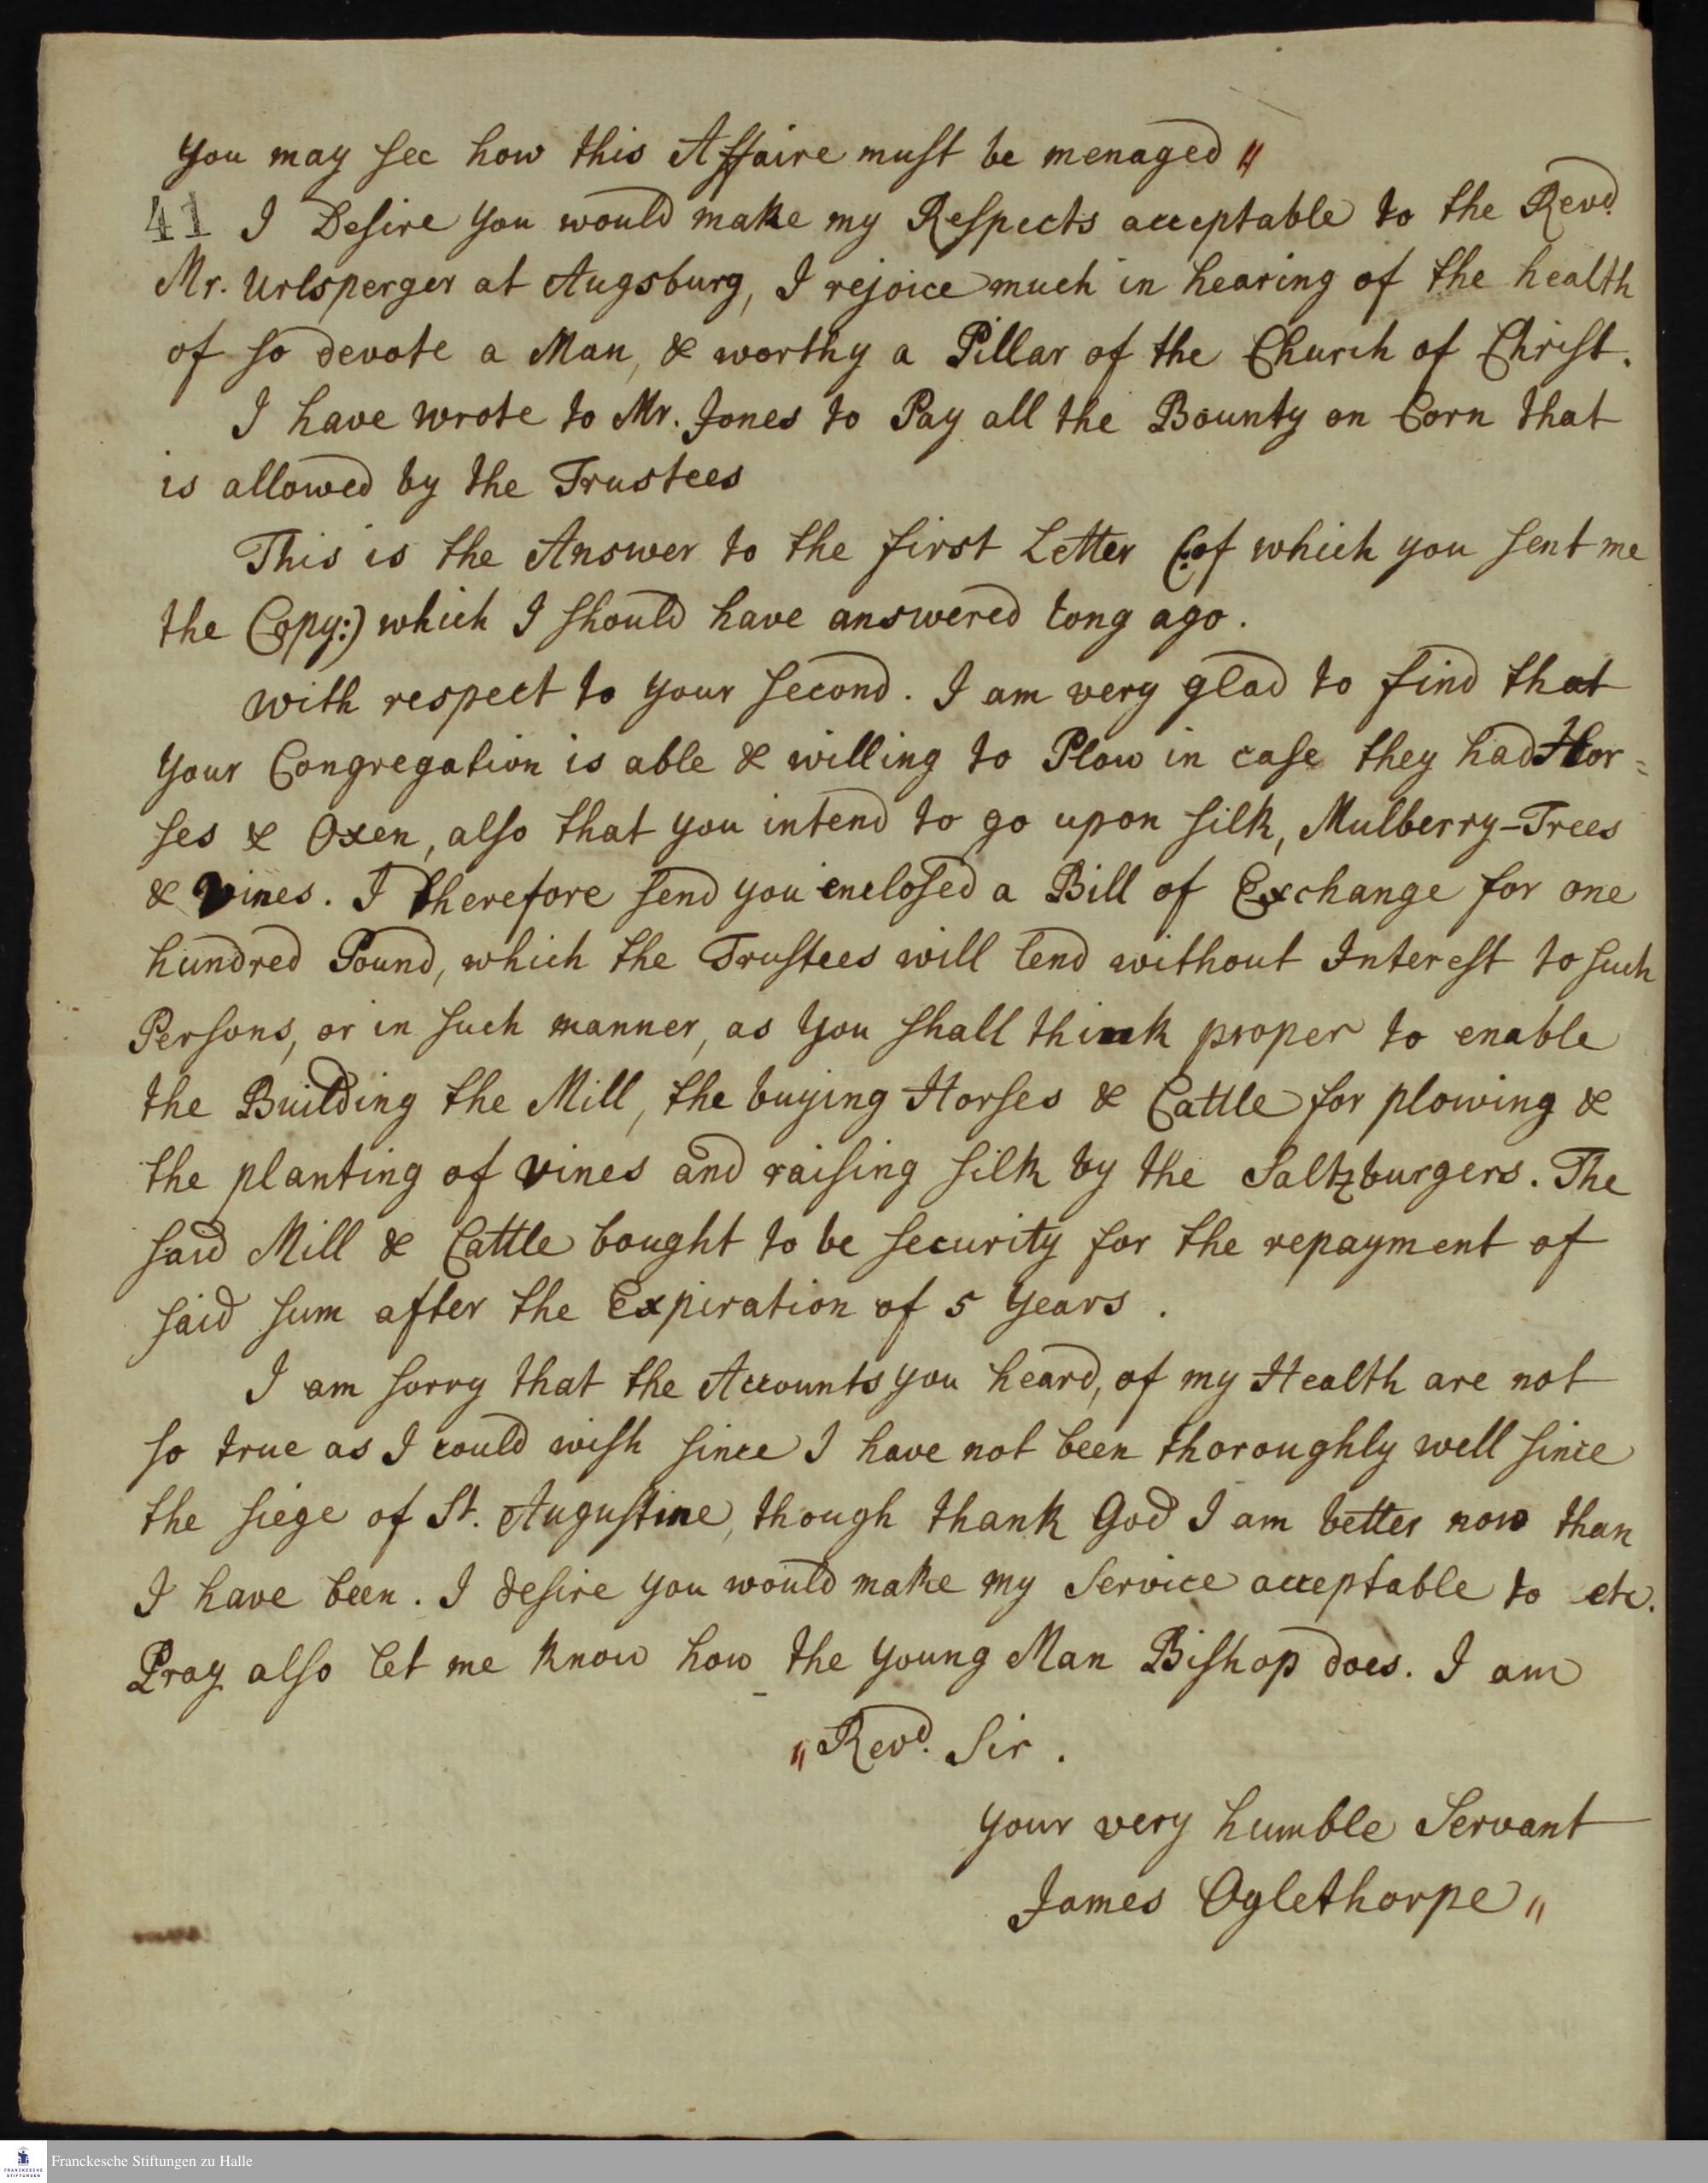 you may see how this Affaire must be menaged "
41 I Desire you would make my Respects acceptable to the Revd.
Mr. Urlsperger at Augsburg, I rejoice much in hearing of the health
of so devote a Man, & worthy a Pillar of the Church of Christ.
I have wrote to Mr. Jones to Pay all the Bounty on Corn that
is allowed by the Trustees
This is the Answer to the first Letter (:of which you sent me
the Copy:) which I should have answered long ago.
with respect to your second. I am very glad to find that
your Congregation is able & willing to Plow in case they had Hor=
ses & Oxen, also that you intend to go upon silk, Mulberry-Trees
& vines. I therefore send you enclosed a Bill of Exchange for one
hundred Pound, which the Trustees will lend without Interest to such
Persons, or in such manner, as you shall think proper to enable
the Building the Mill, the buying Horses & Cattle for plowing &
the planting of vines and raising silk by the Saltzburgers. The
said Mill & Cattle bought to be security for the repayment of
said sum after the Expiration of 5 years.
I am sorry that the Accounts you heard, of my Health are not
so true as I could wish since I have not been thoroughly well since
the siege of St. Augustine, though thank God I am better now than
I have been. I desire you would make my Service acceptable to etc.
Pray also let me know how the young Man Bishop does. I am
"Revd. Sir.
your very humble Servant
James Oglethorpe"
FRANCKESCHE
STIFTUNGEN
Franckesche Stiftungen zu Halle